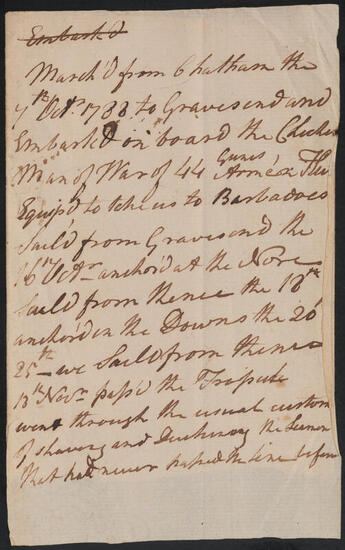 Embark'd
March'd from Chatham the
7th Octr. 1788 to Gravesend and
Embarked on board the
Man of War of 44 Guns, Armé
Equip'd to take us to Barbadoes
Saild from Gravesend the
16th Octr anchor'd at the Nore
Saild from thence the 18th
anchor'd in the Downs the 20
25th we Saild from thence
13th Novr pass'd the Tropick
went through the usual custom
of shaveing and Duckinng the Seamen
that had never passed the line before